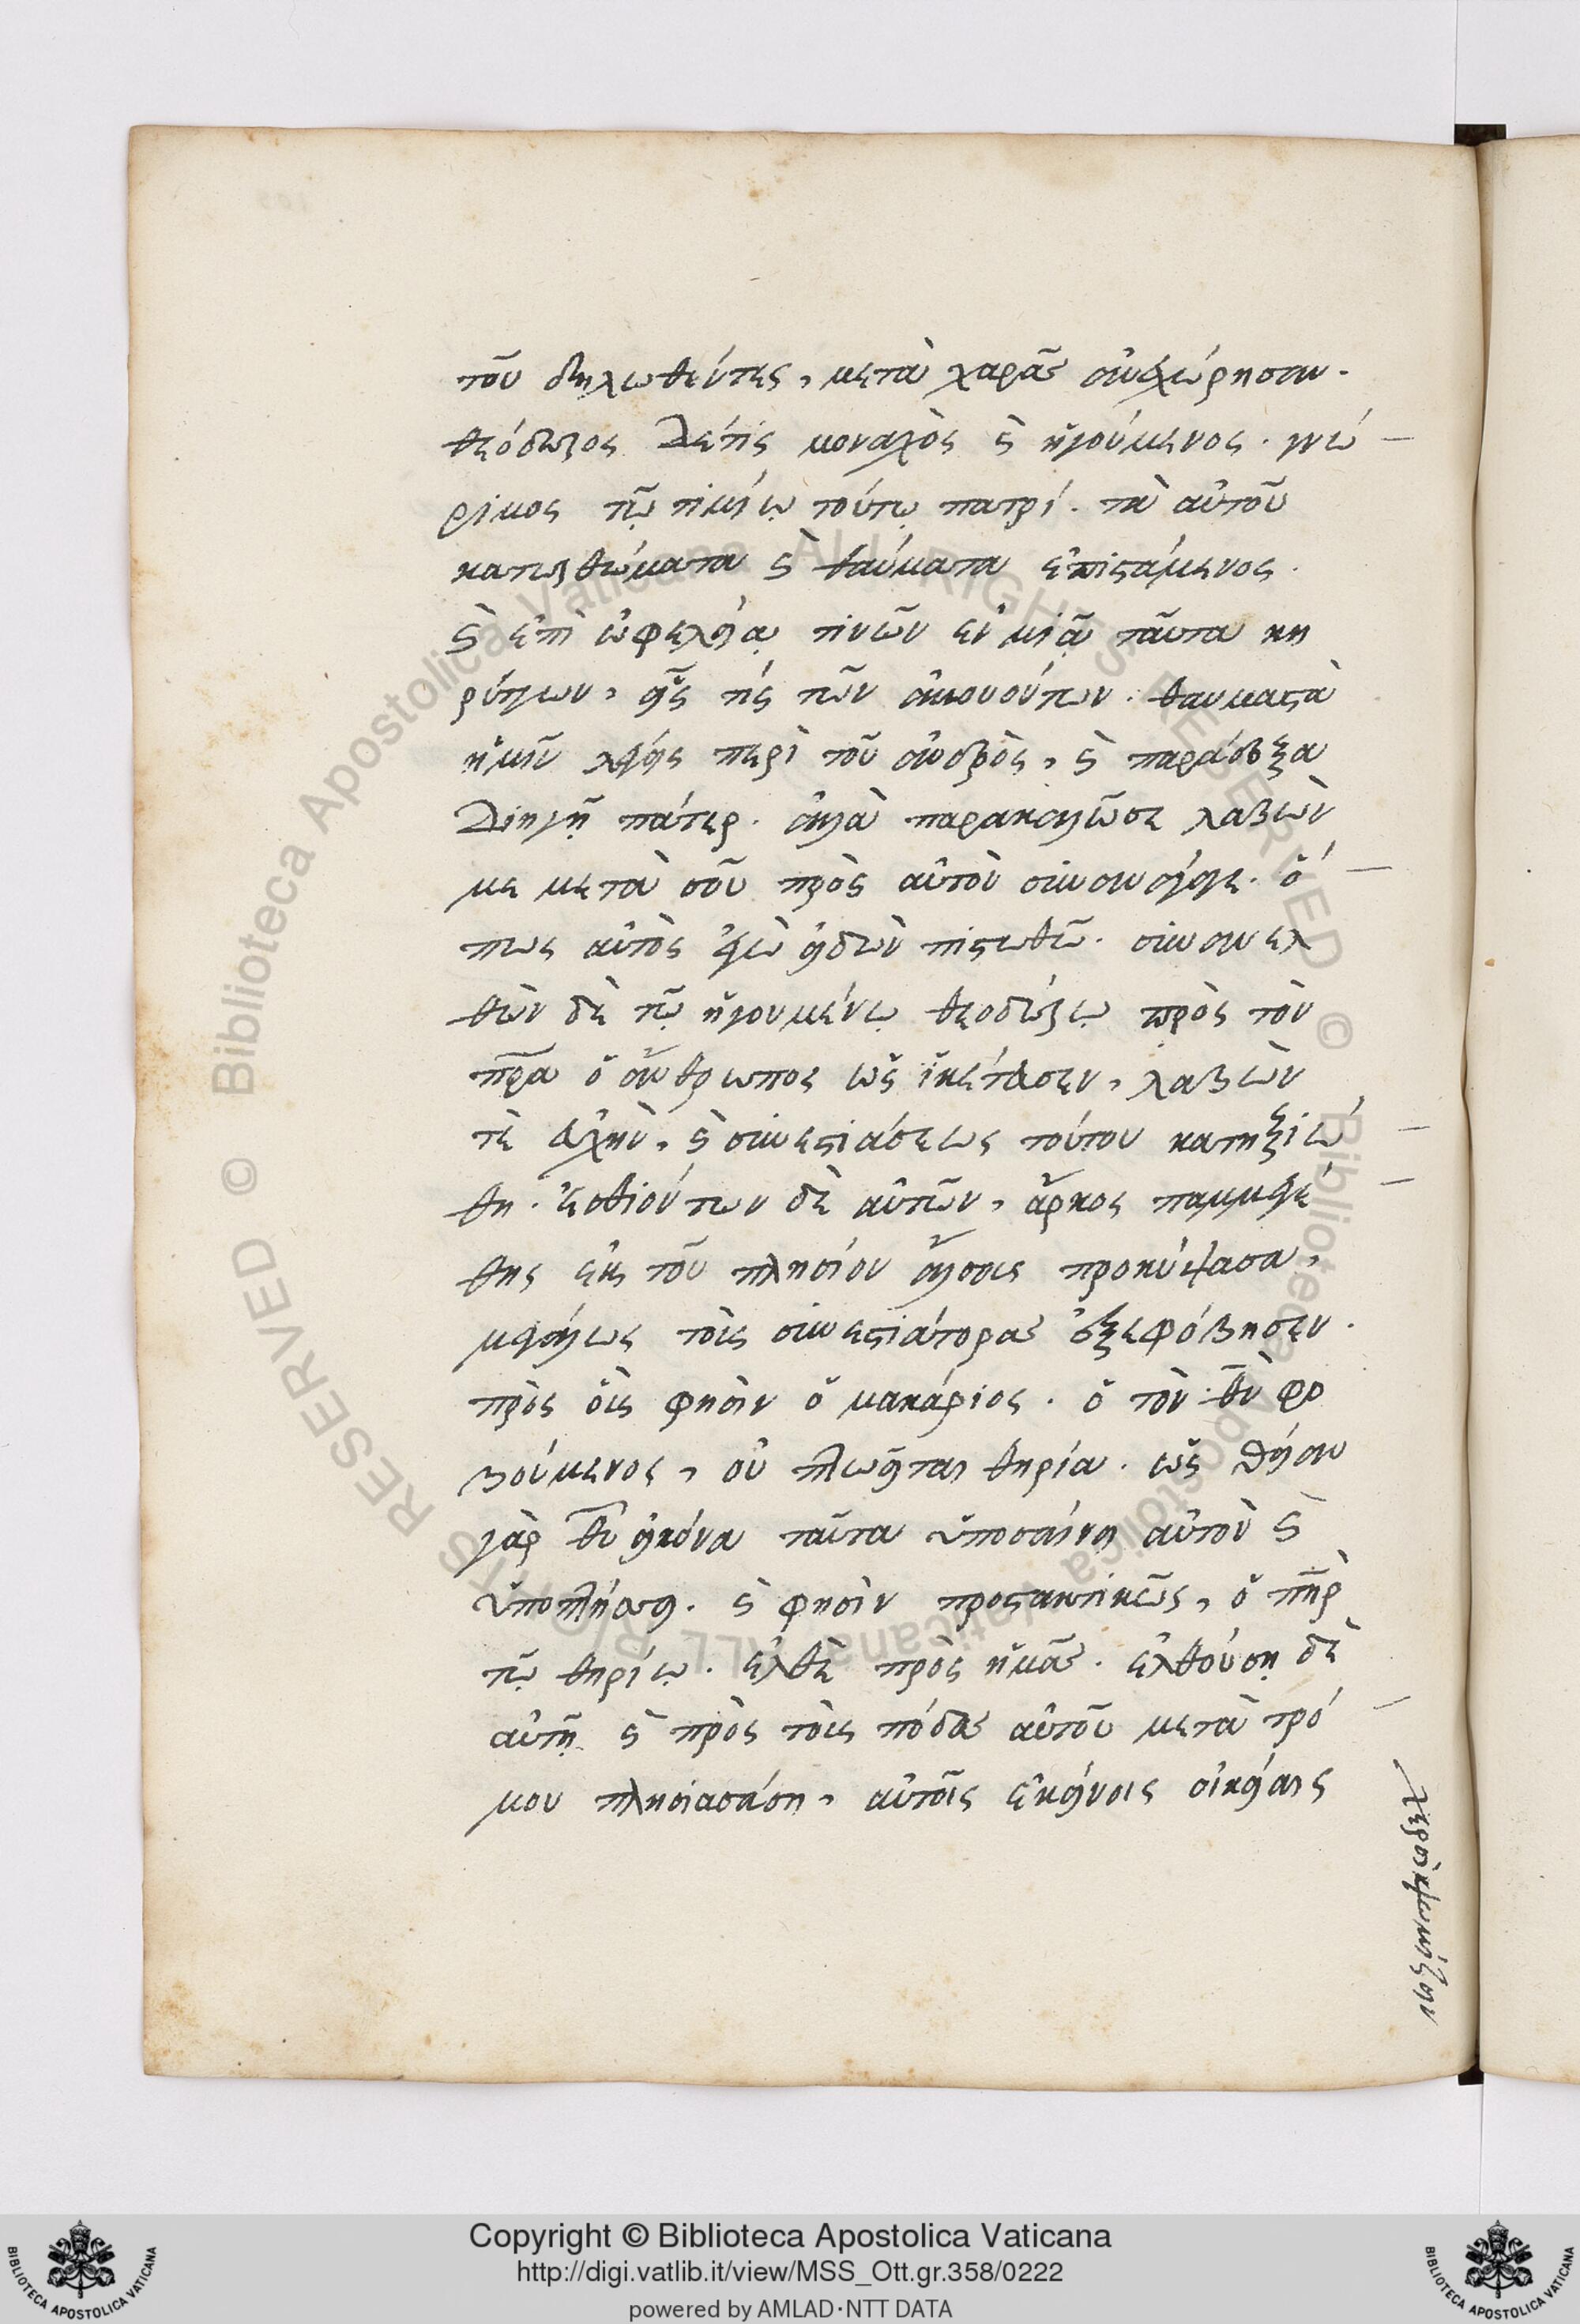 τοῦ δηλωθέντες, μετὰ χαρᾶς ἀνεχώρησαν.
θεόδωρος δέ τις μοναχὸς ϛ̀ ἡγούμενος. γνώ-
ριμος τῷ τιμίῳ τούτῳ πατρί. τὰ αὐτοῦ
κατορθώματα ϛ̀ θαύματα ἐπιστάμενος.
ϛ̀ ἐπὶ ὠφελείᾳ τινῶν ἐν μιᾷ ταῦτα κη
ρύττων, εἷς τίς τῶν ἀκουούντων. θαυμαστὰ
ἡμῖν λέγεις περὶ τοῦ ἀνδρὸς, ϛ̀ παράδοξα
διηγῇ πάτερ. ἀλλὰ παρακαλῶ σε λαβών
με μετὰ σοῦ πρὸς αὐτὸν συναναγάγε. ὅ-
πως αὐτὸς ἐγὼ εἰδὼν πιστωθῶ. συνανελ
θὼν δὲ τῷ ἡγουμένῳ θεοδώρῳ πρὸς τὸν
πρ̅α ὁ ἄνθρωπος ὡς ἱκέτευσεν, λαβὼν
τὲ εὐχὴν, ϛ̀ συνεστιάσεως τούτου κατηξιώ-
θη. ἐσθιόντων δὲ αὐτῶν, ἄρκος παμμεγέ-
θης ἐκ τοῦ πλησίον ἄλσους προκύψασα,
μεγάλως τοὺς συνεστιάτορας ἐξεφόβησεν.
πρὸς οὓς φησὶν ὁ μακάριος. ὁ τὸν θ̅ν φο
βούμενος, οὐ πτωεῖται θηρία. ὡς θείαν
γὰρ θ̅υ εἰκόνα ταῦτα ὑποσαίνει αὐτὸν ϛ̀
ὑποπτήσσει. ϛ̀ φησὶν προστακτικῶς, ὁ π̅η̅ρ
τῷ θηρίῳ. ἐλθὲ πρὸς ἡμᾶς. ἐλθούσῃ δὲ
αὐτῇ ϛ̀ πρὸς τοὺς πόδας αὐτοῦ μετὰ τρό-
μου πλησιασάση, αὐτοῖς ἐκείνοις οἰκείαις
χερσὶ ψωμίζων
Copyright © Biblioteca Apostolica Vaticana
http://digi.vatlib.it/view/MSS_Ott.gr.358/0222
powered by AMLAD·NTT DATA